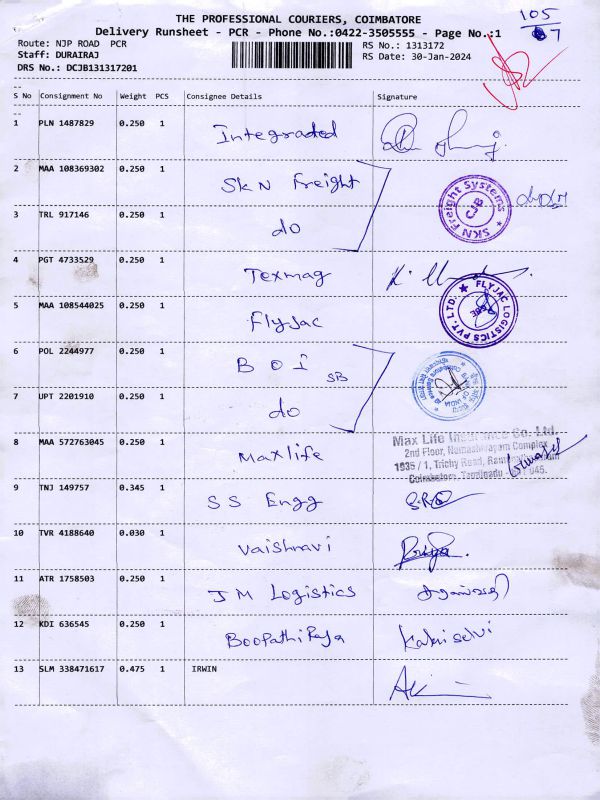 THE PROFESSIONAL COURIERS, COIMBATORE
Delivery Runsheet - PCR - Phone No.:0422-3505555 - Page No.:1
105
7
Route: NJP ROAD PCR
Staff: DURAIRAJ
DRS No.: DCJB131317201
RS No.: 1313172
RS Date: 30-Jan-2024
S No Consignment No Weight PCS Consignee Details Signature
1 PLN 1487829 0.250 1 Integraded
2 MAA 108369302 0.250 1 SKN Freight
SKN Freight Systems CJB
3 TRL 917146 0.250 1 do
4 PGT 4733529 0.250 1 Texmag
5 MAA 108544025 0.250 1 Flyjac
FLYJAC LOGISTICS PVT. LTD.
6 POL 2244977 0.250 1 BOI SB
7 UPT 2201910 0.250 1 do
8 MAA 572763045 0.250 1 Maxlife
Max Life Insurance Co. Ltd.
2nd Floor, Complex
1935 / 1, Trichy Road,
Coimbatore, Tamilnadu
9 TNJ 149757 0.345 1 SS Engg
10 TVR 4188640 0.030 1 Vaishnavi Priya
11 ATR 1758503 0.250 1 JM Logistics
12 KDI 636545 0.250 1 BoopathiRaja Kalaiselvi
13 SLM 338471617 0.475 1 IRWIN